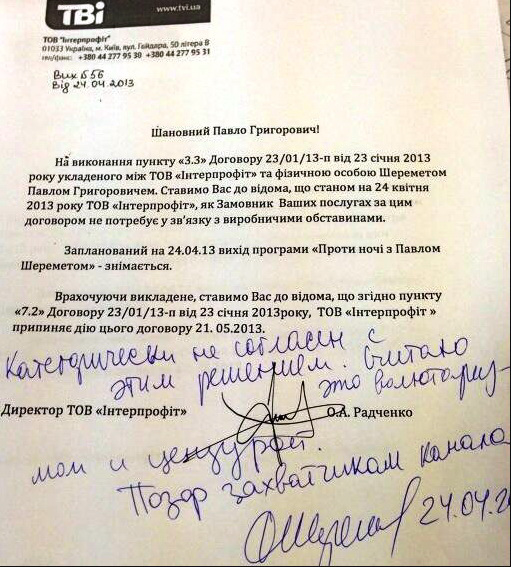 ТВі
www.tvi.ua
ТОВ "Інтерпрофіт"
01033 Україна, м. Київ, вул. Гайдара, 50 літера В
тел/факс: +380 44 277 95 30 +380 44 277 95 31
Вих № 56
Від 24.04.2013
Шановний Павло Григорович!
На виконання пункту «3.3» Договору 23/01/13-п від 23 січня 2013
року укладеного між ТОВ «Інтерпрофіт» та фізичною особою Шереметом
Павлом Григоровичем. Ставимо Вас до відома, що станом на 24 квітня
2013 року ТОВ «Інтерпрофіт», як Замовник Ваших послугах за цим
договором не потребує у зв'язку з виробничими обставинами.
Запланований на 24.04.13 вихід програми «Проти ночі з Павлом
Шереметом» - знімається.
Врахочуючи викладене, ставимо Вас до відома, що згідно пункту
«7.2» Договору 23/01/13-п від 23 січня 2013року, ТОВ «Інтерпрофіт »
припиняє дію цього договору 21. 05.2013.
Категорически не согласен с
этим решением. Считаю
это волютариз-
Директор ТОВ «Інтерпрофіт» О.А. Радченко
мом и цензурой.
Позор захватчикам канала
24.04.2